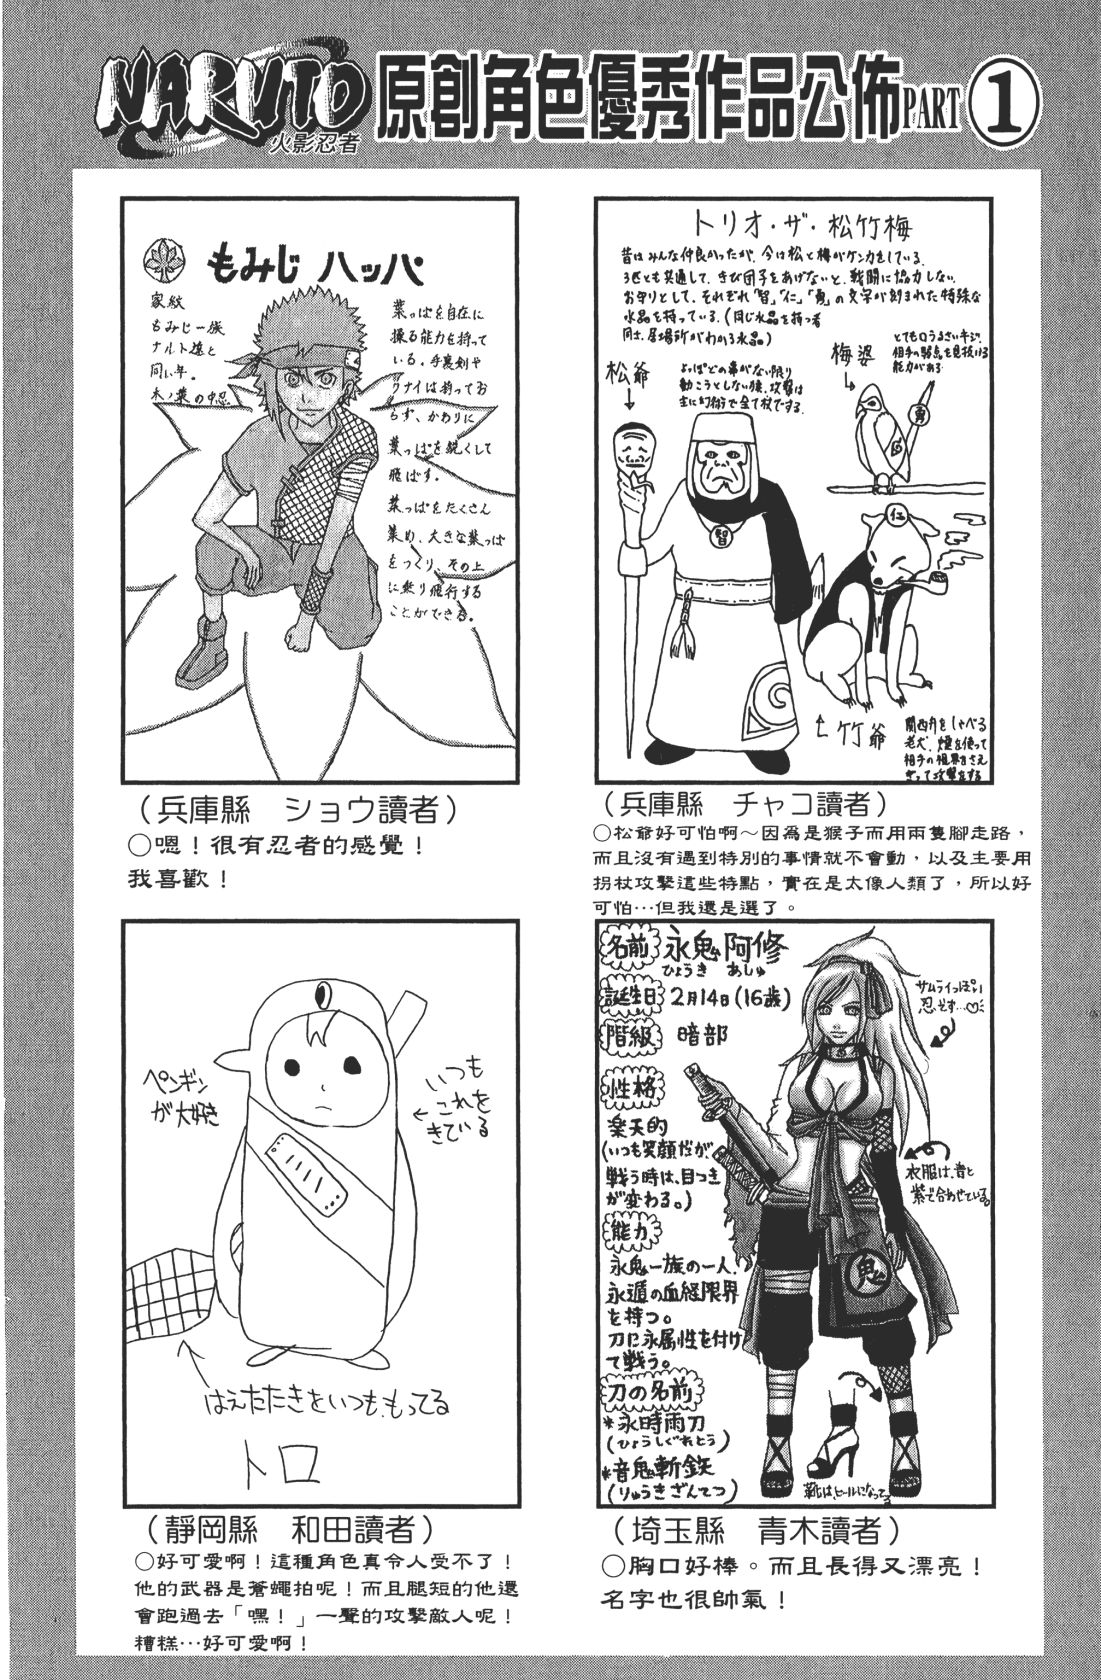 NARUTO
火影忍者
原創角色優秀作品公佈PART 1
もみじ ハッパ
家紋
もみじ一族
ナルト達と
同い年。
木ノ葉の中忍
葉っぱを自在に
操る能力を持って
いる。手裏剣や
クナイは持ってお
らず、かわりに
葉っぱを鋭くして
飛ばす。
葉っぱをたくさん
集め、大きな葉っぱ
をつくり、その上
に乗り飛行する
ことができる。
(兵庫縣 ショウ讀者)
○嗯!很有忍者的感覺!
我喜歡!
トリオ・ザ・松竹梅
昔はみんな仲良かったが、今は松と梅がケンカをしている。
3匹とも共通して、きび団子をあげないと、戦闘に協力しない。
お守りとして、それぞれ「智」「仁」「勇」の文字が刻まれた特殊な
水晶を持っている。(同じ水晶を持つ者
同士、居場所がわかる水晶)
松爺
よっぽどの事がない限り
動こうとしない猿。攻撃は
主に幻術で全て杖でする。
梅婆
とても口うるさいキジ。
相手の弱点を見抜ける
能力がある
勇
智
仁
竹爺
関西弁をしゃべる
老犬。煙を使って
相手の視界をさえ
ぎって攻撃をする
(兵庫縣 チャコ讀者)
○松爺好可怕啊～因為是猴子而用兩隻腳走路,
而且沒有遇到特別的事情就不會動,以及主要用
拐杖攻擊這些特點,實在是太像人類了,所以好
可怕…但我還是選了。
ペンギン
が大好き
いつも
これを
きている
はえたたきをいつも、もってる
トロ
(靜岡縣 和田讀者)
○好可愛啊!這種角色真令人受不了!
他的武器是蒼蠅拍呢!而且腿短的他還
會跑過去「嘿!」一聲的攻擊敵人呢!
糟糕…好可愛啊!
名前 氷鬼 阿修
ひょうき あしゅ
誕生日 2月14日(16歳)
階級 暗部
性格
楽天的
(いつも笑顔だが
戦う時は、目つき
が変わる。)
能力
氷鬼一族の一人。
氷遁の血経限界
を持つ。
刀に氷属性を付け
て戦う。
刀の名前
*氷時雨刀
(ひょうしぐれとう)
*音鬼斬鉄
(りゅうきざんてつ)
サムライっぽい
忍です…♡
衣服は、青と
紫で合わせている。
鬼
靴は、ヒールになってる
(埼玉縣 青木讀者)
○胸口好棒。而且長得又漂亮!
名字也很帥氣!